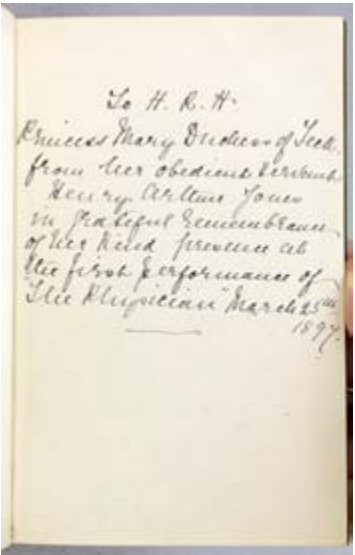 To H. R. H.
Princess Mary Duchess of Teck.
from her obedient servant
Henry Arthur Jones
in grateful remembrance
of her kind presence at
the first performance of
"The Physician" March 25th
1897.